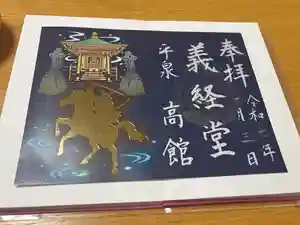 奉拝
令和二年
一月三日
義経堂
平泉
高館